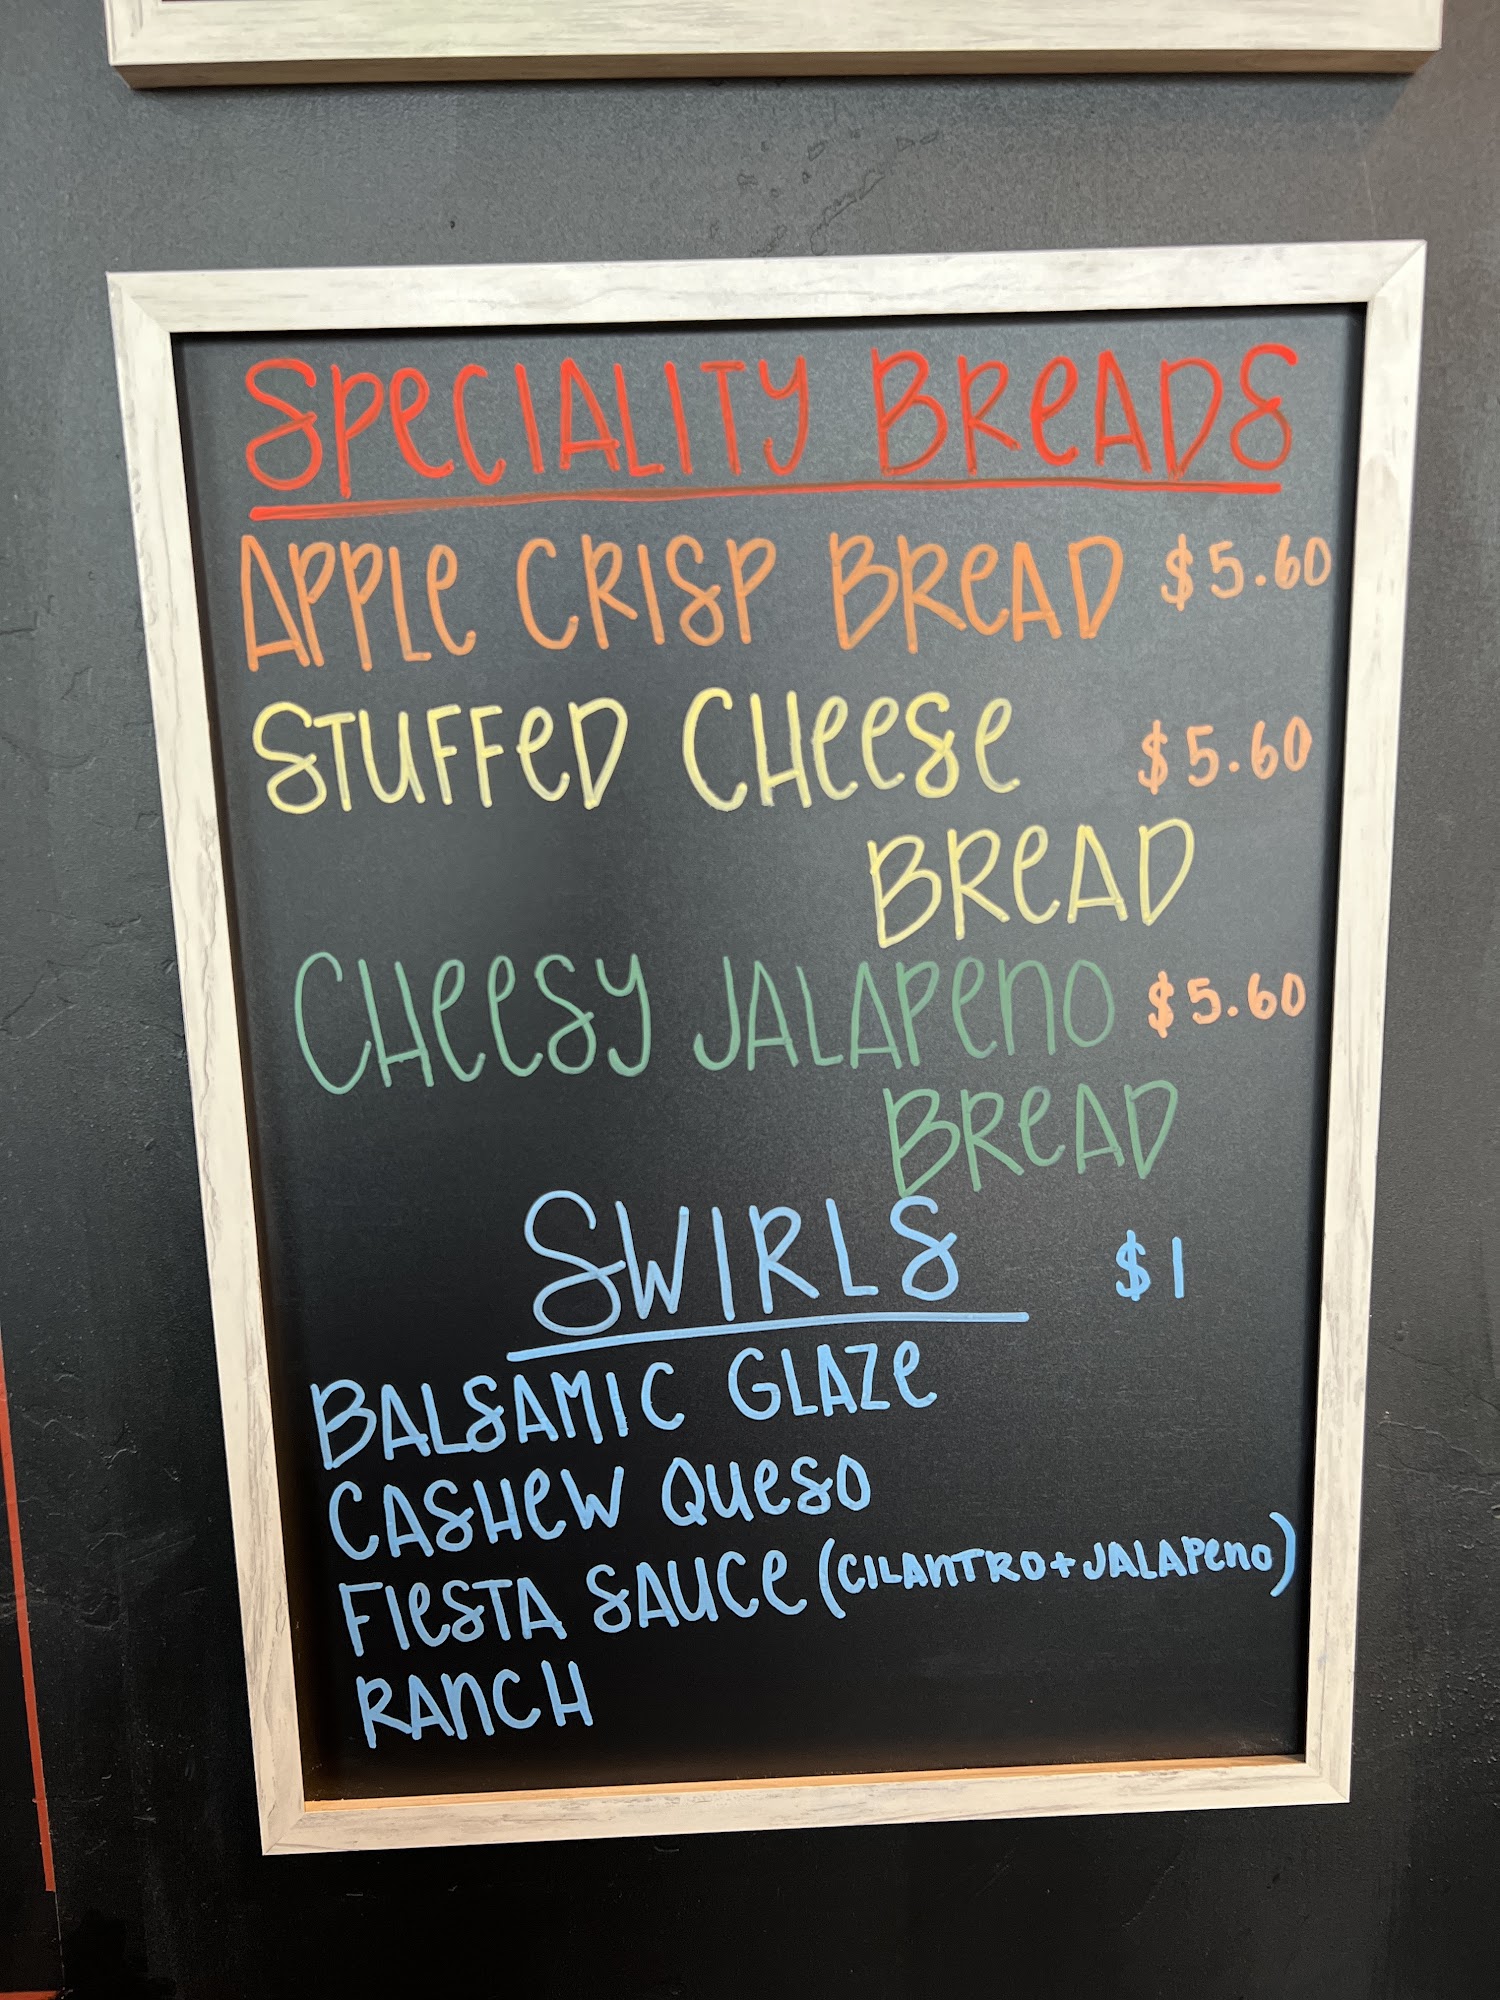 SPECIALITY BREADS
APPLE CRISP BREAD $5.60
STUFFED CHEESE $5.60
BREAD
CHEESY JALAPENO $5.60
BREAD
SWIRLS $1
BALSAMIC GLAZE
CASHEW QUESO
FIESTA SAUCE (CILANTRO+JALAPENO)
RANCH